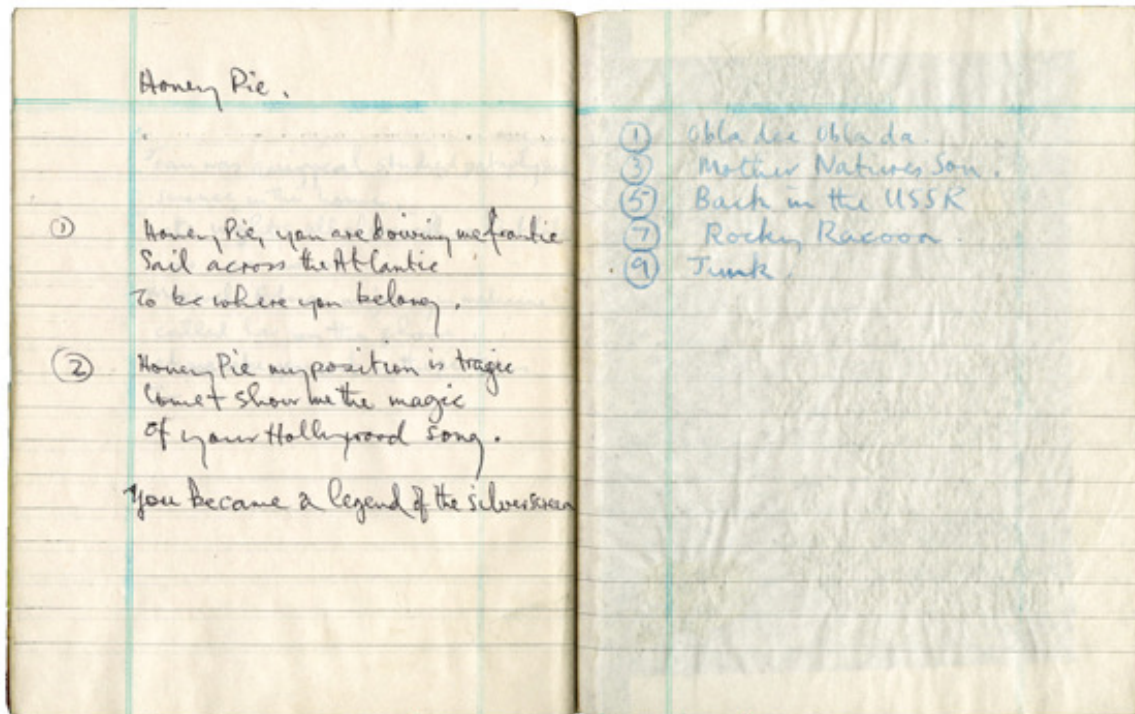 Honey Pie.
① Honey Pie, you are driving me frantic
Sail across the Atlantic
To be where you belong.
② Honey Pie my position is tragic
Come + show me the magic
of your Hollywood song.
You became a legend of the silver screen
① Obla dee Obla da.
③ Mother Natures Son.
⑤ Back in the USSR
⑦ Rocky Racoon
⑨ Junk.